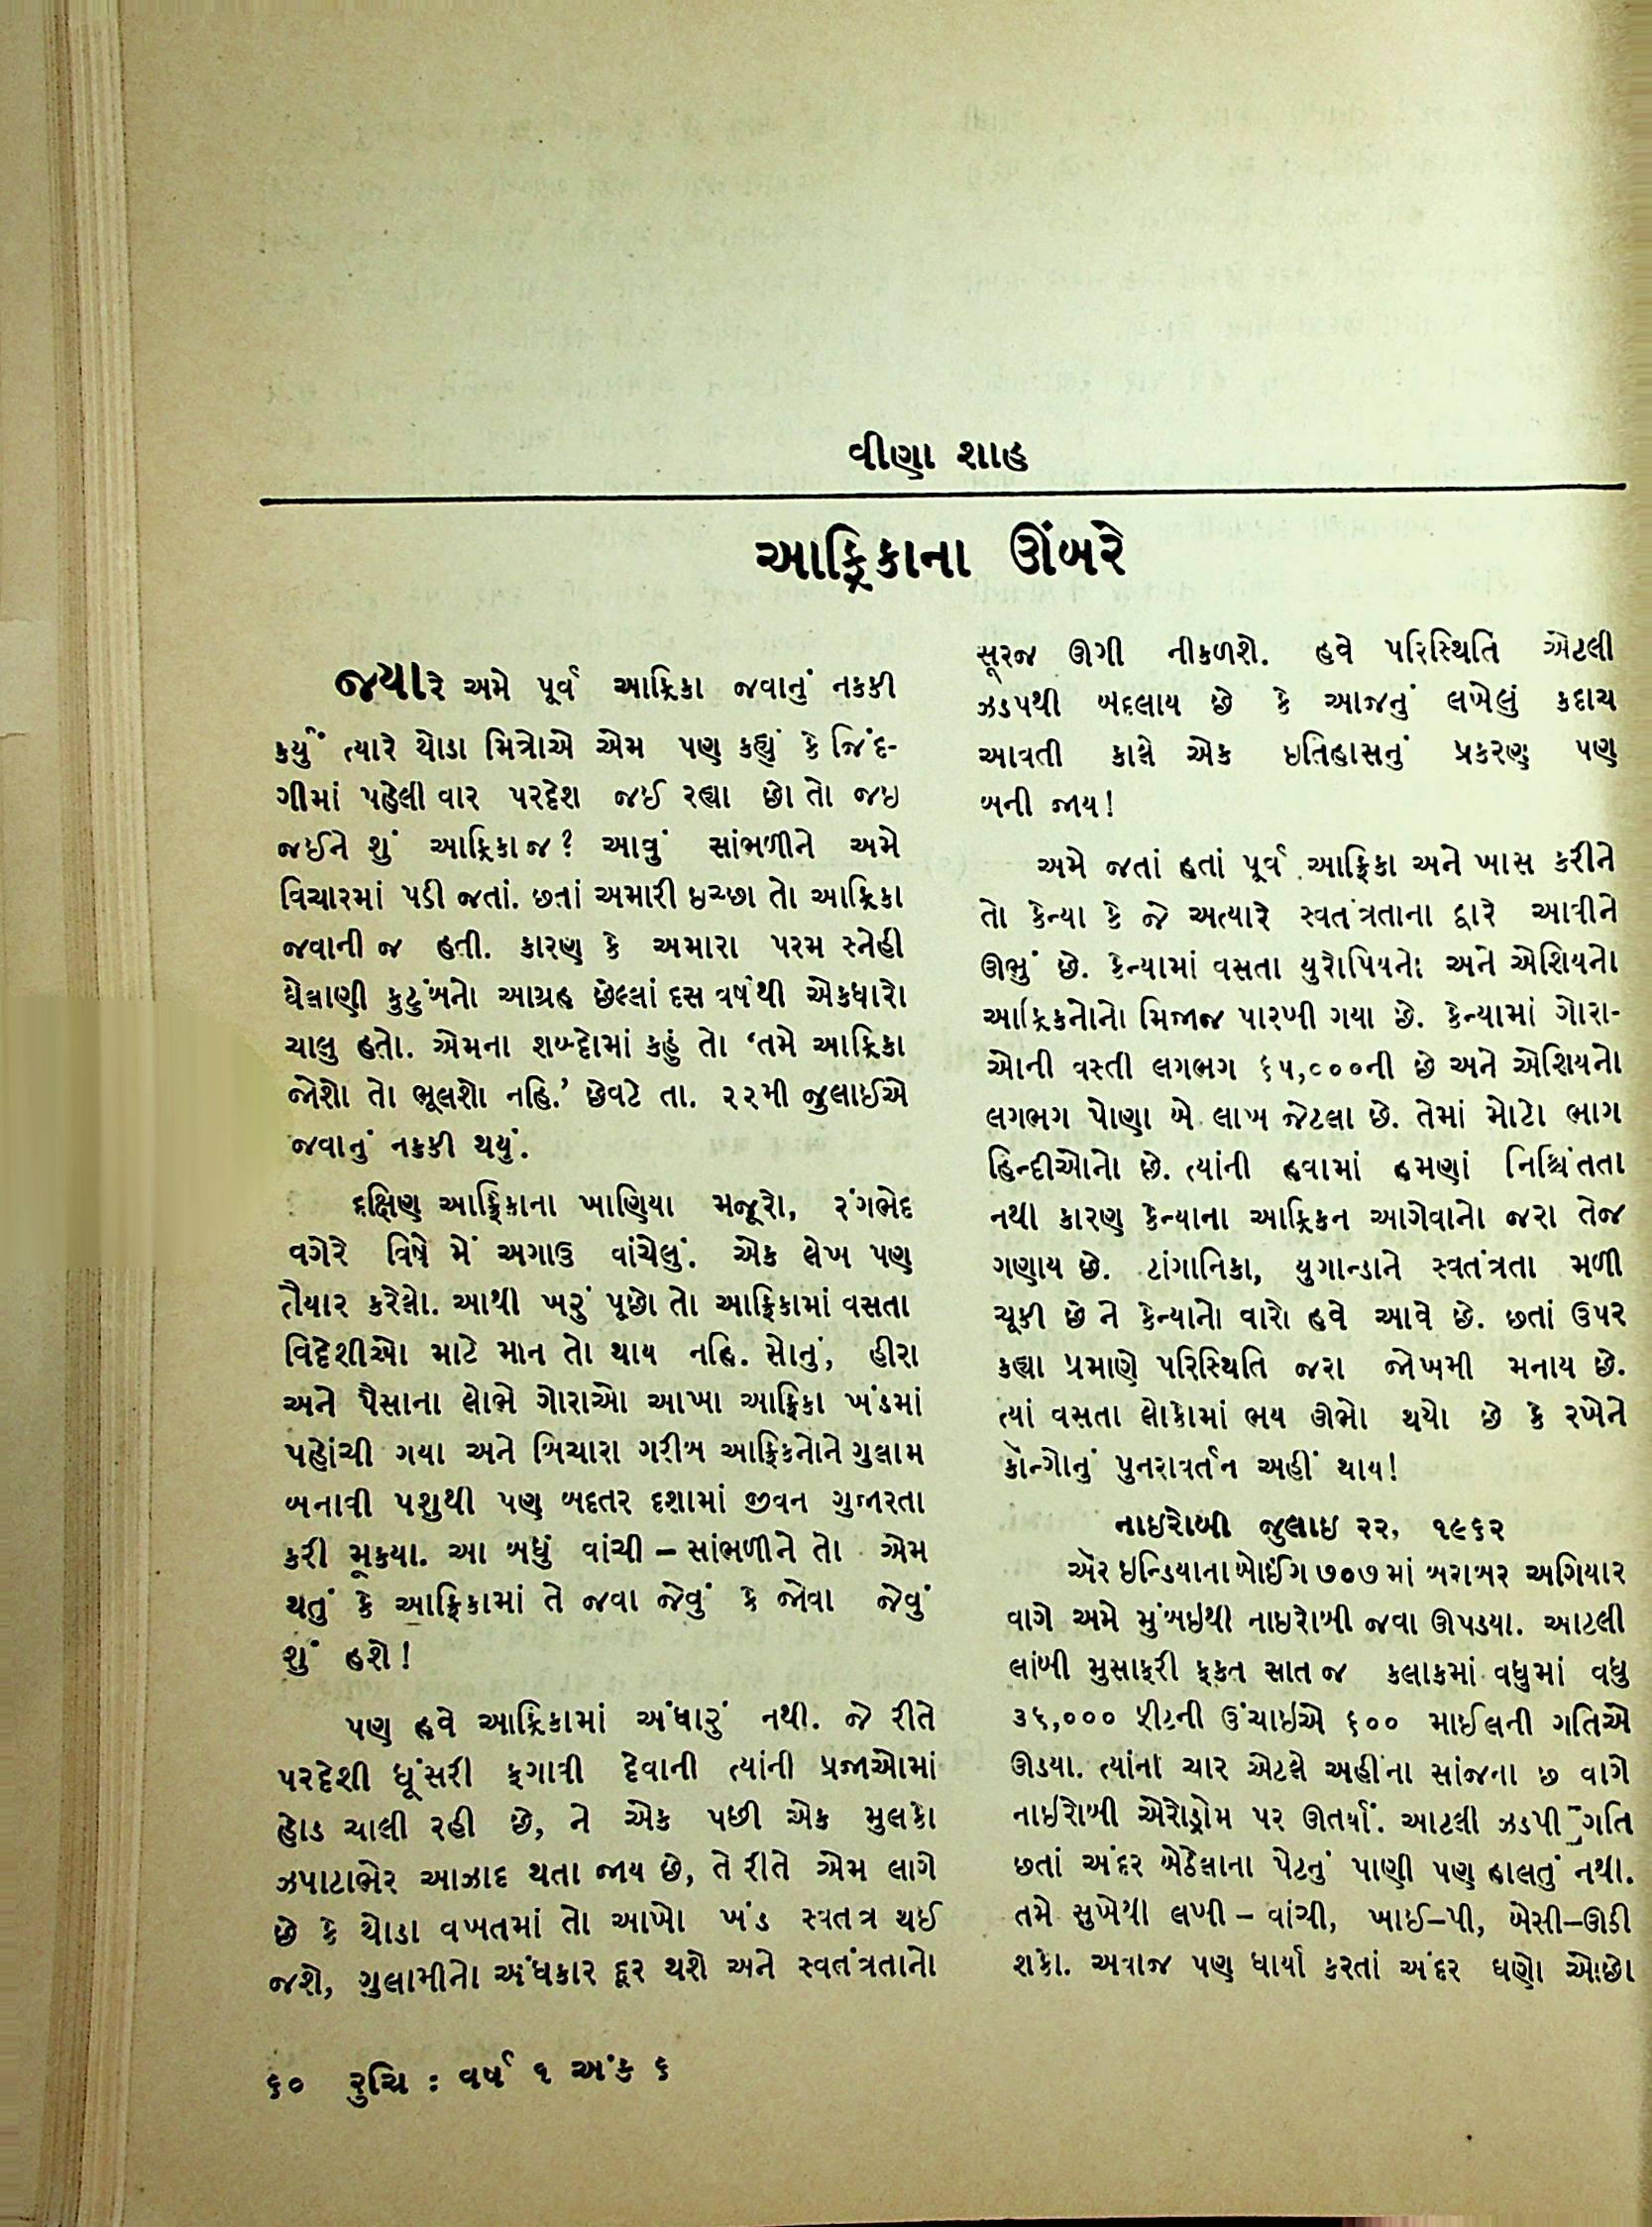 વીણા શાહ
આફ્રિકાના ઊંબરે
જ્યારે અમે પૂર્વ આફ્રિકા જવાનું નક્કી
કર્યું ત્યારે થોડા મિત્રોએ એમ પણ કહ્યું કે જિંદ-
ગીમાં પહેલી વાર પરદેશ જઈ રહ્યા છો તો જઇ
જઈને શું આફ્રિકા જ? આવું સાંભળીને અમે
વિચારમાં પડી જતાં. છતાં અમારી ઇચ્છા તો આફ્રિકા
જવાની જ હતી. કારણ કે અમારા પરમ સ્નેહી
ઘેલાણી કુટુંબનો આગ્રહ છેલ્લાં દસ વર્ષથી એકધારો
ચાલુ હતો. એમના શબ્દોમાં કહું તો ‘તમે આફ્રિકા
જોશો તો ભૂલશો નહિ.’ છેવટે તા. ૨૨મી જુલાઈએ
જવાનું નક્કી થયું.
દક્ષિણ આફ્રિકાના ખાણિયા મજૂરો, રંગભેદ
વગેરે વિષે મેં અગાઉ વાંચેલું. એક લેખ પણ
તૈયાર કરેલો. આથી ખરું પૂછો તો આફ્રિકામાં વસતા
વિદેશીઓ માટે માન તો થાય નહિ. સોનું, હીરા
અને પૈસાના લોભે ગોરાઓ આખા આફ્રિકા ખંડમાં
પહોંચી ગયા અને બિચારા ગરીબ આફ્રિકનોને ગુલામ
બનાવી પશુથી પણ બદતર દશામાં જીવન ગુજારતા
કરી મૂક્યા. આ બધું વાંચી – સાંભળીને તો એમ
થતું કે આફ્રિકામાં તે જવા જેવું કે જોવા જેવું
શું હશે!
પણ હવે આફ્રિકામાં અંધારું નથી. જે રીતે
પરદેશી ધૂંસરી ફગાવી દેવાની ત્યાંની પ્રજાઓમાં
હોડ ચાલી રહી છે, ને એક પછી એક મુલકો
ઝપાટાભેર આઝાદ થતા જાય છે, તે રીતે એમ લાગે
છે કે થોડા વખતમાં તો આખો ખંડ સ્વતંત્ર થઈ
જશે, ગુલામીનો અંધકાર દૂર થશે અને સ્વતંત્રતાનો
સૂરજ ઊગી નીકળશે. હવે પરિસ્થિતિ એટલી
ઝડપથી બદલાય છે કે આજનું લખેલું કદાચ
આવતી કાલે એક ઇતિહાસનું પ્રકરણ પણ
બની જાય!
અમે જતાં હતાં પૂર્વ આફ્રિકા અને ખાસ કરીને
તો કેન્યા કે જે અત્યારે સ્વતંત્રતાના દ્વારે આવીને
ઊભું છે. કેન્યામાં વસતા યુરોપિયનો અને એશિયનો
આફ્રિકનોનો મિજાજ પારખી ગયા છે. કેન્યામાં ગોરા-
ઓની વસ્તી લગભગ ૬૫,૦૦૦ની છે અને એશિયનો
લગભગ પોણા બે લાખ જેટલા છે. તેમાં મોટો ભાગ
હિન્દીઓનો છે. ત્યાંની હવામાં હમણાં નિશ્ચિંતતા
નથી કારણ કેન્યાના આફ્રિકન આગેવાનો જરા તેજ
ગણાય છે. ટાંગાનિકા, યુગાન્ડાને સ્વતંત્રતા મળી
ચૂકી છે ને કેન્યાનો વારો હવે આવે છે. છતાં ઉપર
કહ્યા પ્રમાણે પરિસ્થિતિ જરા જોખમી મનાય છે.
ત્યાં વસતા લોકોમાં ભય ઊભો થયો છે કે રખેને
કૉન્ગોનું પુનરાવર્તન અહીં થાય!
નાઇરોબી જુલાઇ ૨૨, ૧૯૬૨
ઍર ઇન્ડિયાના બોઈંગ ૭૦૭ માં બરાબર અગિયાર
વાગે અમે મુંબઇથી નાઇરોબી જવા ઊપડયા. આટલી
લાંબી મુસાફરી ફક્ત સાત જ કલાકમાં વધુમાં વધુ
૩૬,૦૦૦ ફીટની ઉંચાઇએ ૬૦૦ માઈલની ગતિએ
ઊડયા. ત્યાંના ચાર એટલે અહીંના સાંજના છ વાગે
નાઈરોબી એરોડ્રોમ પર ઊતર્યાં. આટલી ઝડપી ગતિ
છતાં અંદર બેઠેલાના પેટનું પાણી પણ હાલતું નથી.
તમે સુખેથી લખી – વાંચી, ખાઈ–પી, બેસી–ઊઠી
શકો. અવાજ પણ ધાર્યા કરતાં અંદર ઘણો ઓછો
૬૦ રુચિ : વર્ષ ૧ અંક ૬